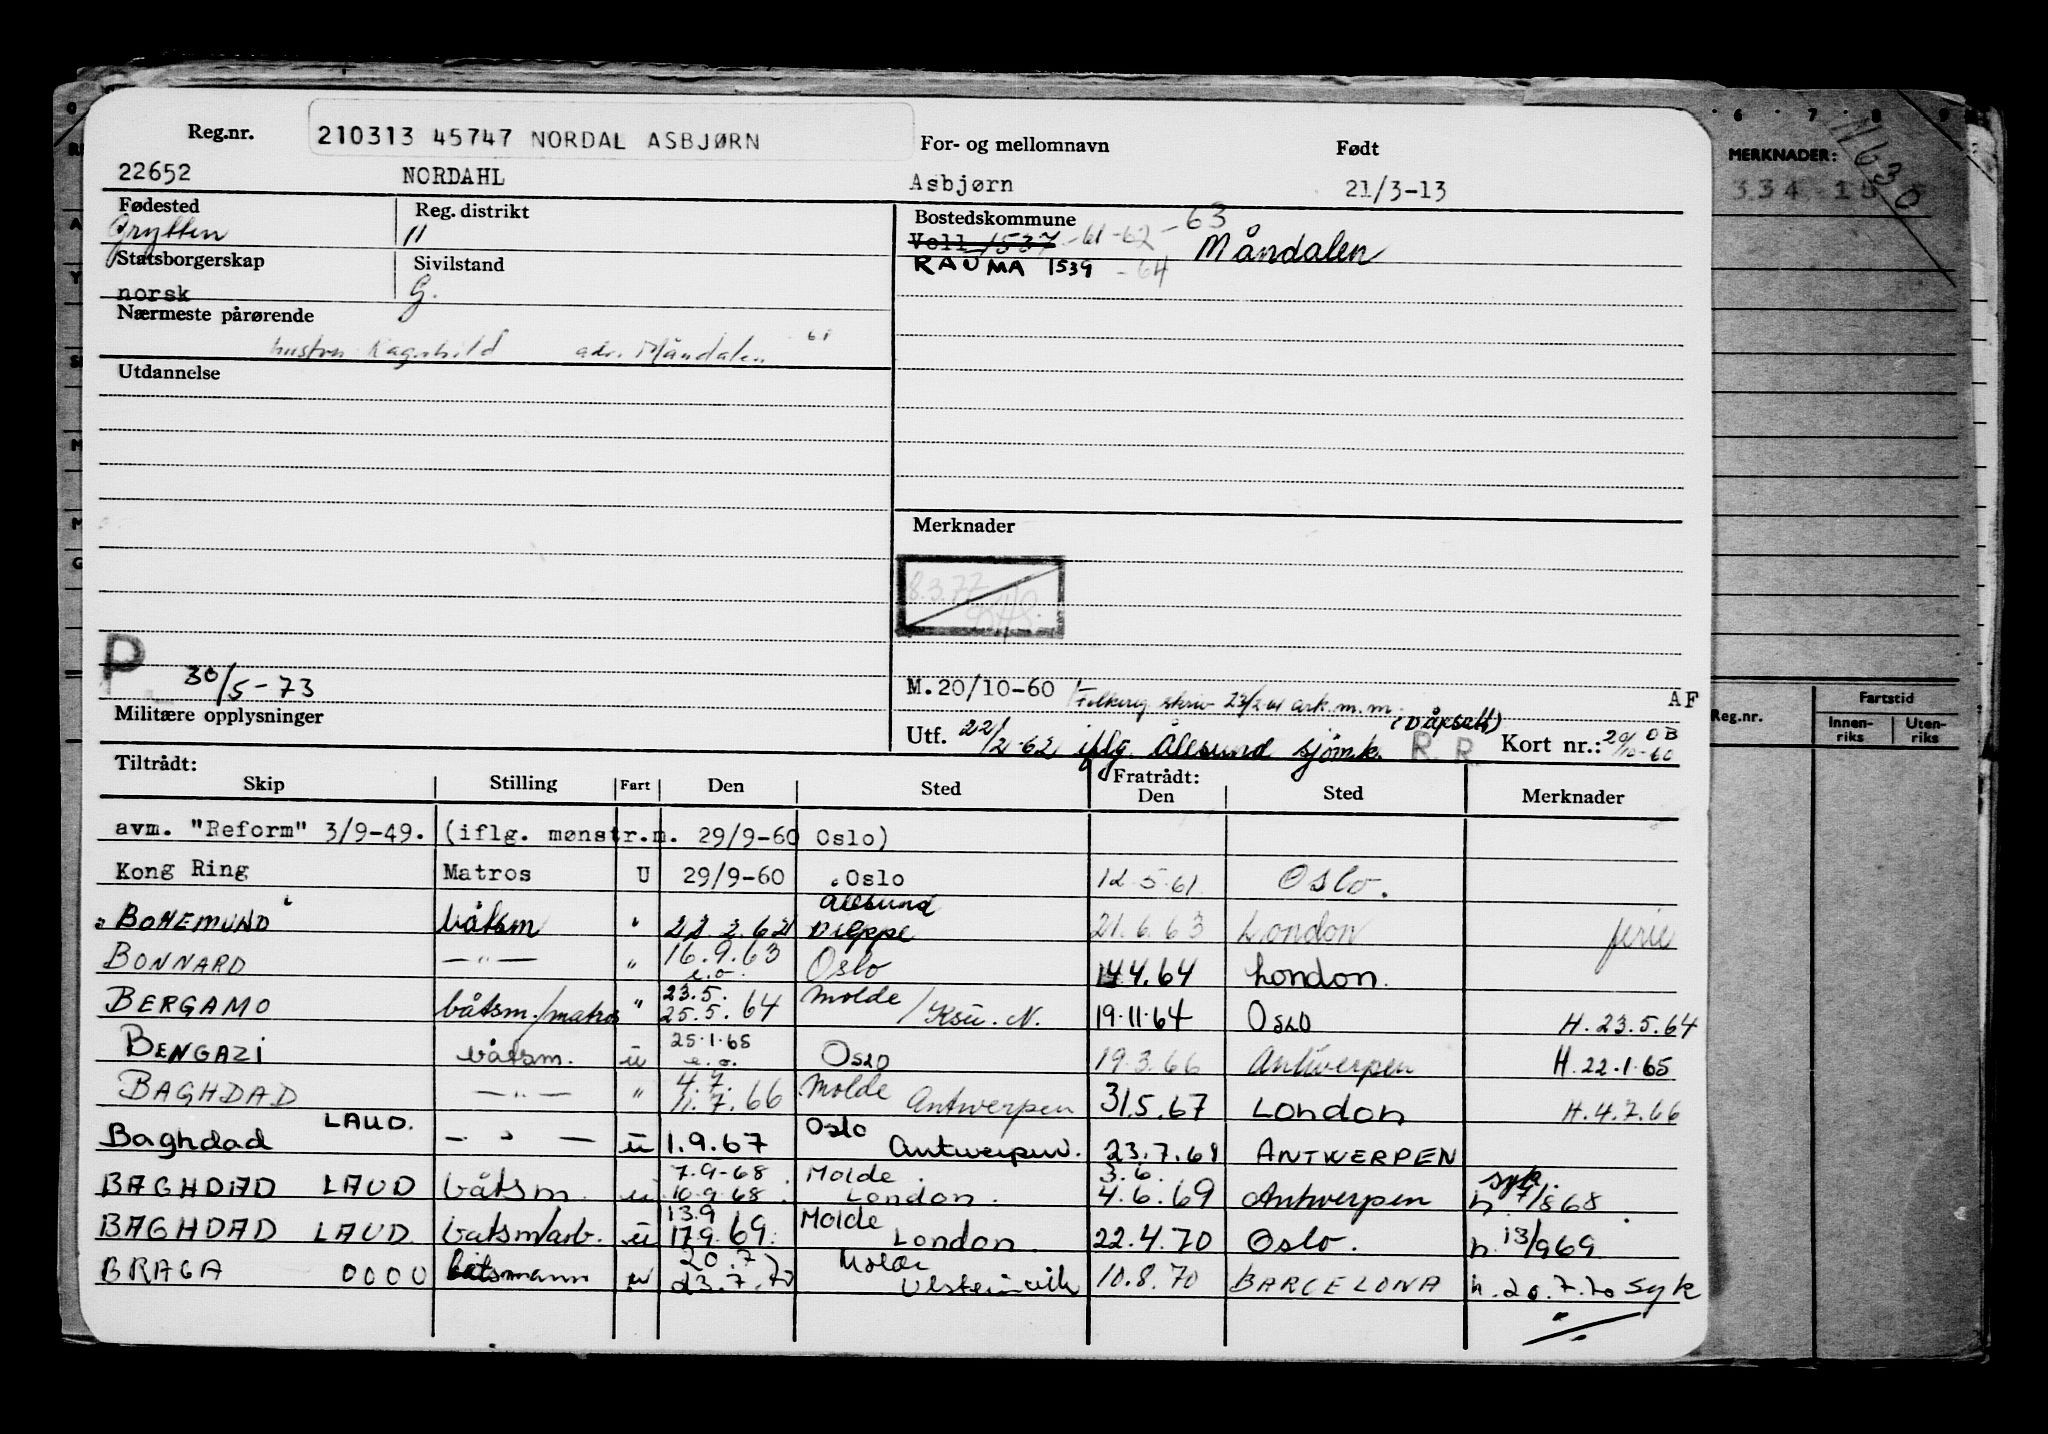 Reg.nr. 210313 45747 NORDAL ASBJØRN For- og mellomnavn Født
22652 NORDAHL Asbjørn 21/3-13
Fødested Reg. distrikt Bostedskommune
Grytten 11 Voll 1537 -61-62-63 Måndalen
Statsborgerskap Sivilstand RAUMA 1539 -64
norsk G.
Nærmeste pårørende
hustru Ragnhild adr. Måndalen 61
Utdannelse
Merknader
8.3.77
P 30/5-73
M.20/10-60 skriv 23/2-61 ark. m.m. AF
Militære opplysninger Utf. 22/2-62 iflg. Ålesund sjømk. R. R. Kort nr.: 20/10-60 OB
Tiltrådt: Fratrådt:
Skip Stilling Fart Den Sted Den Sted Merknader
avm. "Reform" 3/9-49. (iflg. mønstr.m. 29/9-60 Oslo)
Kong Ring Matros U 29/9-60 Oslo 12.5.61 Oslo.
Ålesund
BOHEMUND båtsm " 22.2.62 Dieppe 21.6.63 London ferie
BONNARD —"— " 16.9.63 e.o. Oslo 14.4.64 London.
BERGAMO båtsm./matros " 23.5. 25.5.64 Molde / Ksu. N. 19.11.64 OSLO H. 23.5.64
BENGAZI båtsm. u 25.1.65 e.o. OSLO 19.3.66 Antwerpen H. 22.1.65
BAGHDAD —"— " 4.7. 11.7.66 Molde Antwerpen 31.5.67 London H. 4.7.66
Baghdad LAUD. —"— u 1.9.67 Oslo Antwerpen. 23.7.68 ANTWERPEN
BAGHDAD LAUD båtsm. u 7.9-68 10.9.68. Molde London. 3.6. 4.6.69 Antwerpen syk. h. 7/868.
BAGHDAD LAUD båtsm/arb. u 13.9 17.9.69. Molde London 22.4.70 Oslo. h. 13/969
BRAGA 0000 båtsmann u 20.7.7 23.7.70 Molde Ulsteinvik 10.8.70 BARCELONA h. 20.7.70 syk
MERKNADER:
6 7 8 9
Reg.nr. Fartstid
Innenriks Utenriks